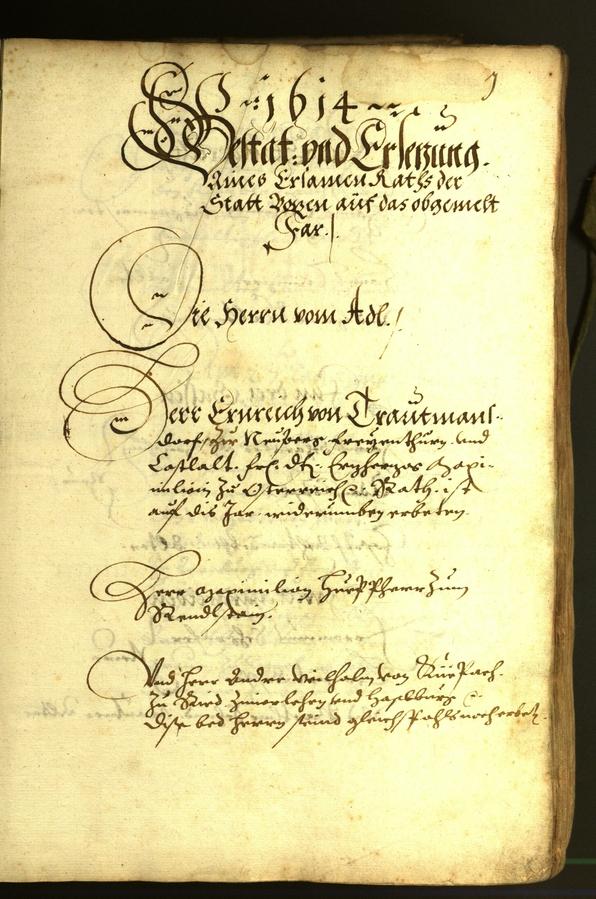 1614
Bestat: und Ersetzung.
Aines Ersamen Raths der
Statt Bozen auf das obgemelt
Jar.
Die Herrn vom Adl.
Herr Ernreich von Trautmans-
dorf, zu Neuberg, Freyenthurn und
Castlalt. frl. dt. Erzherzog Maxi-
milian zu Österreich Rath ist
auf dis Jar widerumben erbeten.
Herr Maximilian zum
Rendlstain.
Und Herr Andre Wilhalm von Kuepach
zu Ried Zimerlehen und Haslburg
Dise bed Herrn seind gleichfahls noch erbet.